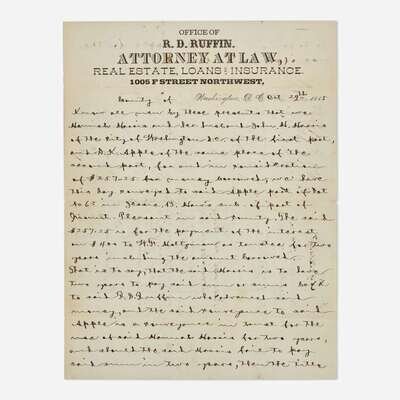 OFFICE OF
R. D. RUFFIN.
ATTORNEY AT LAW,
REAL ESTATE, LOANS AND INSURANCE.
1005 F STREET NORTHWEST,
County of Washington, D. C. Oct 29th 1885
Know all men by these presents that we
Hannah Harris and her husband John H. Harris
of the City of Washington D.C. of the first part,
and R.K. Apple of the same place of the
second part, for and in consideration
of $257.25 for money borrowed, we have
this day conveyed to said Apple part of lot
No 6 in Jessie B. sub. of part of
Pleasant in said County. The said
$257.25 is for the payment of the interest
on $400 to as trustee for two
years including the amount borrowed.
That is to say, that the said Harris is to have
two years to pay said sum or sums
to said R.D. Ruffin who advanced said
money, and the said conveyance to said
Apple is a conveyance in trust for the
use of said Hannah Harris for two years,
and should the said Harris fail to pay
said sum in two years, then the title